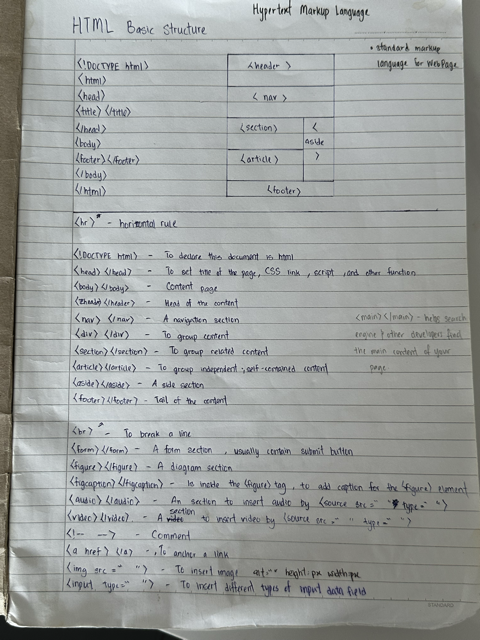 Hypertext Markup Language
HTML Basic Structure
• standard markup
language for WebPage
<!DOCTYPE html>
<html>
<head>
<title> </title>
</head>
<body>
<footer></footer>
</body>
</html>
<header>
<nav>
<section>
<article>
<
aside
>
<footer>
<hr>* - horizontal rule
<!DOCTYPE html> - To declare this document is html
<head></head> - To set title of the page, CSS link, script, and other function
<body></body> - Content page
</header> - Head of the content
<nav></nav> - A navigation section
<div></div> - To group content
<section></section> - To group related content
<article></article> - To group independent, self-contained content
<aside></aside> - A side section
<footer></footer> - Tail of the content
<main></main> - helps search
engine & other developers find
the main content of your
page
<br>* - To break a line
<form></form> - A form section, usually contain submit button
<figure></figure> - A diagram section
<figcaption></figcaption> - To inside the <figure> tag, to add caption for the <figure> element
<audio></audio> - An section to insert audio by <source src=" " type=" ">
<video></video> - A section to insert video by <source src=" " type=" ">
<!-- --> - Comment
<a href></a> - To anchor a link
<img src=" "> - To insert image alt="" height:px width:px
<input type=" "> - To insert different types of input data field